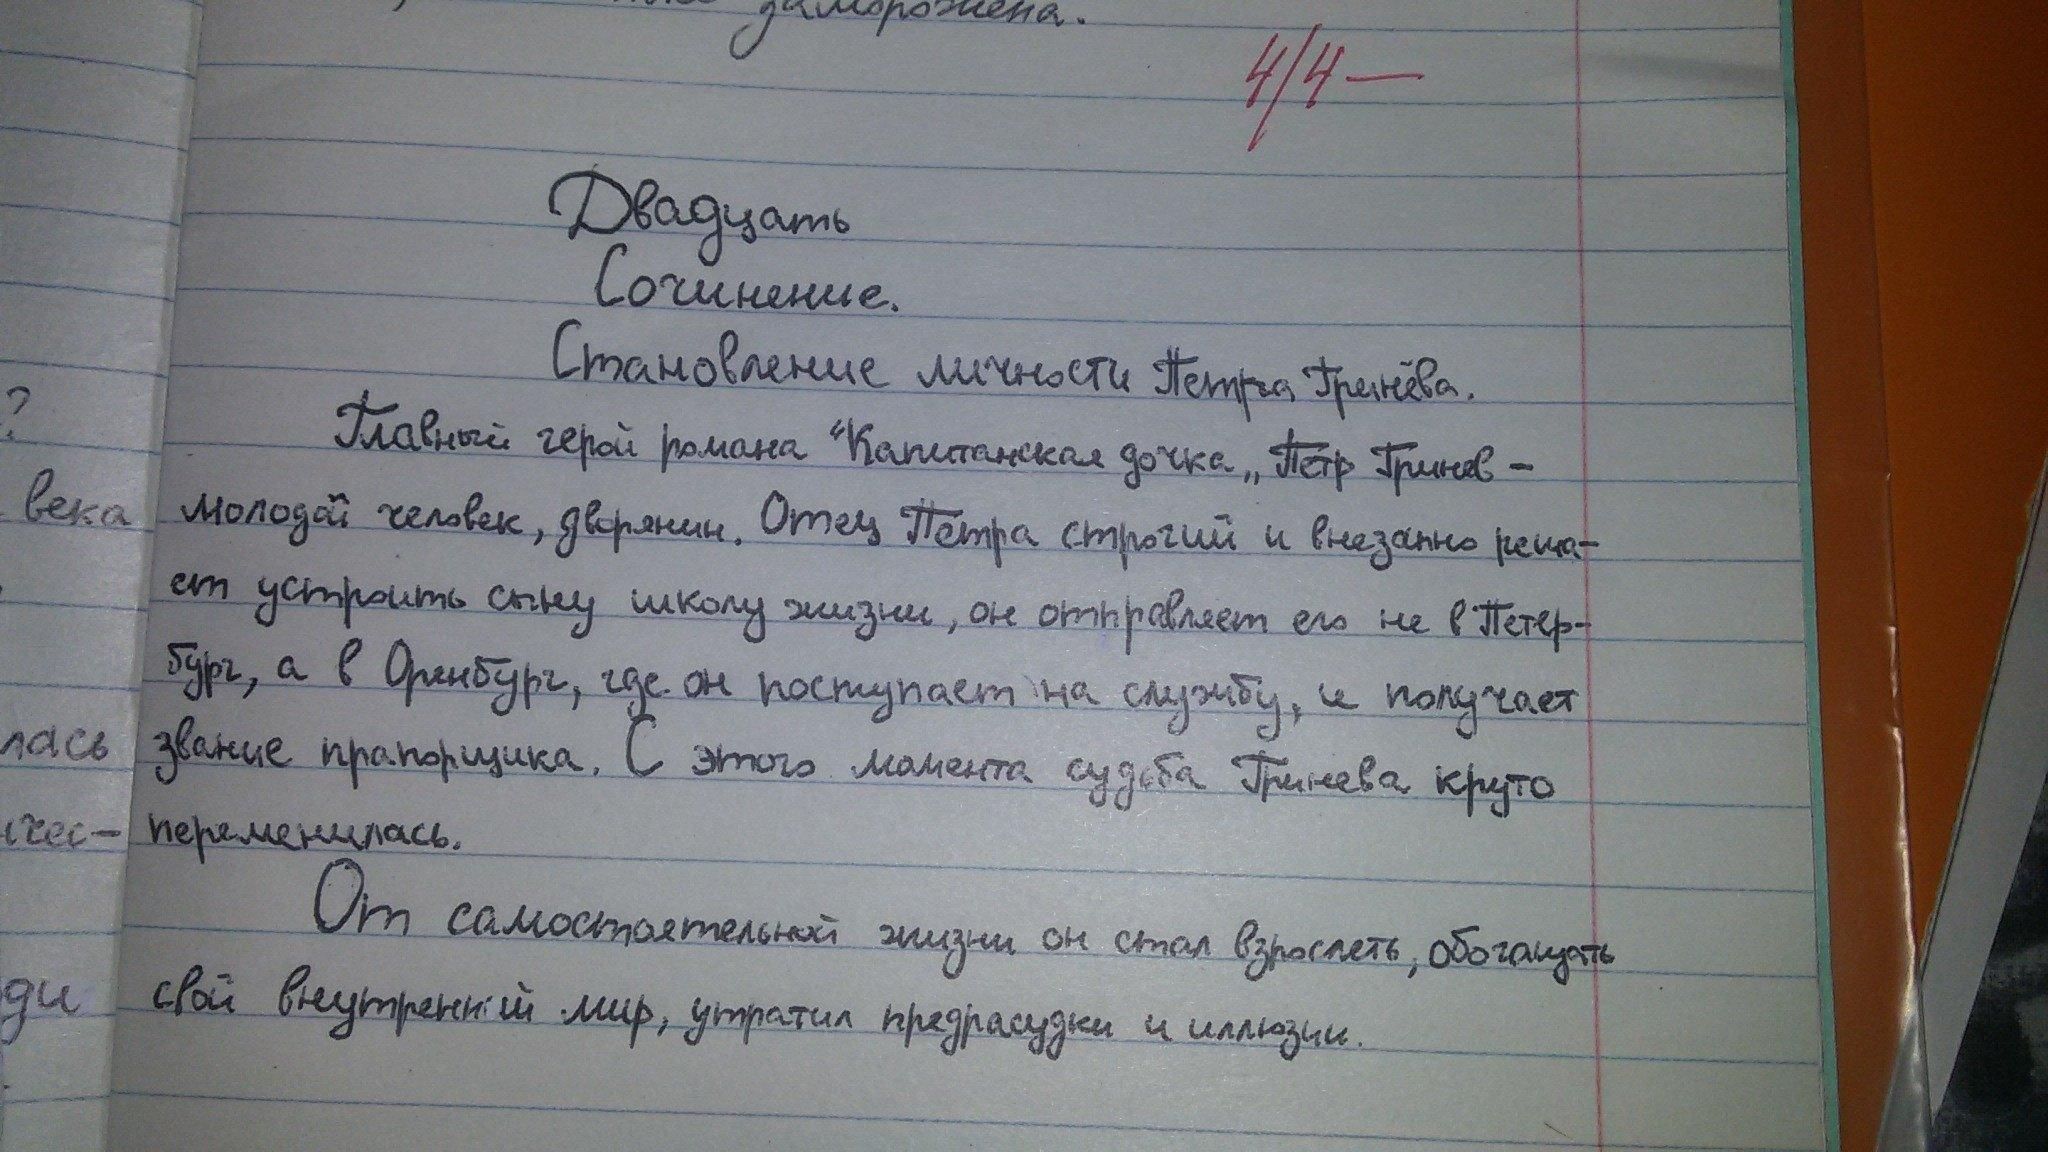 заморожена.
4/4—
Двадцать
Сочинение.
Становление личности Петра Гринёва.
?
Главный герой романа “Капитанская дочка„ Пётр Гринев –
века
молодой человек, дворянин. Отец Петра строгий и внезапно реша-
ет устроить сыну школу жизни, он отправляет его не в Петер-
бург, а в Оренбург, где он поступает на службу, и получает
лась
звание прапорщика. С этого момента судьба Гринева круто
ичес-
переменилась.
От самостоятельной жизни он стал взрослеть, обогащать
ди
свой внутренний мир, утратил предрасудки и иллюзии.